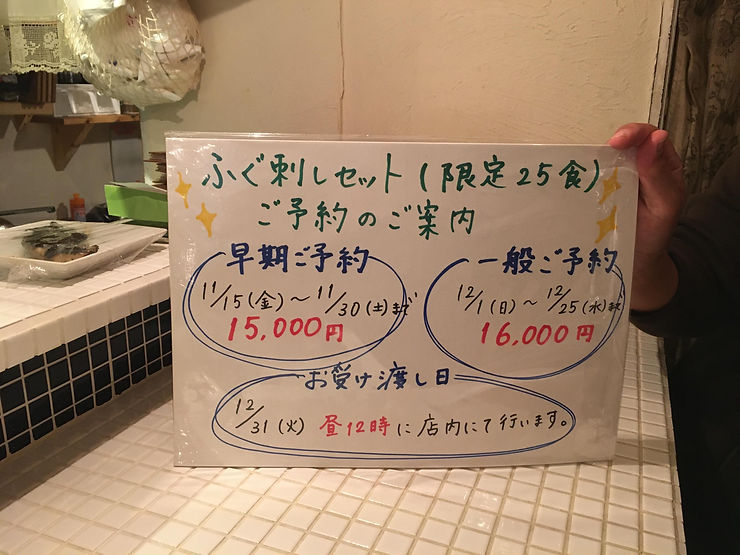 ふぐ刺しセット(限定25食)
ご予約のご案内
早期ご予約
11/15(金)~11/30(土)まで
15,000円
一般ご予約
12/1(日)~12/25(水)まで
16,000円
お受け渡し日
12/31(火) 昼12時に店内にて行います。